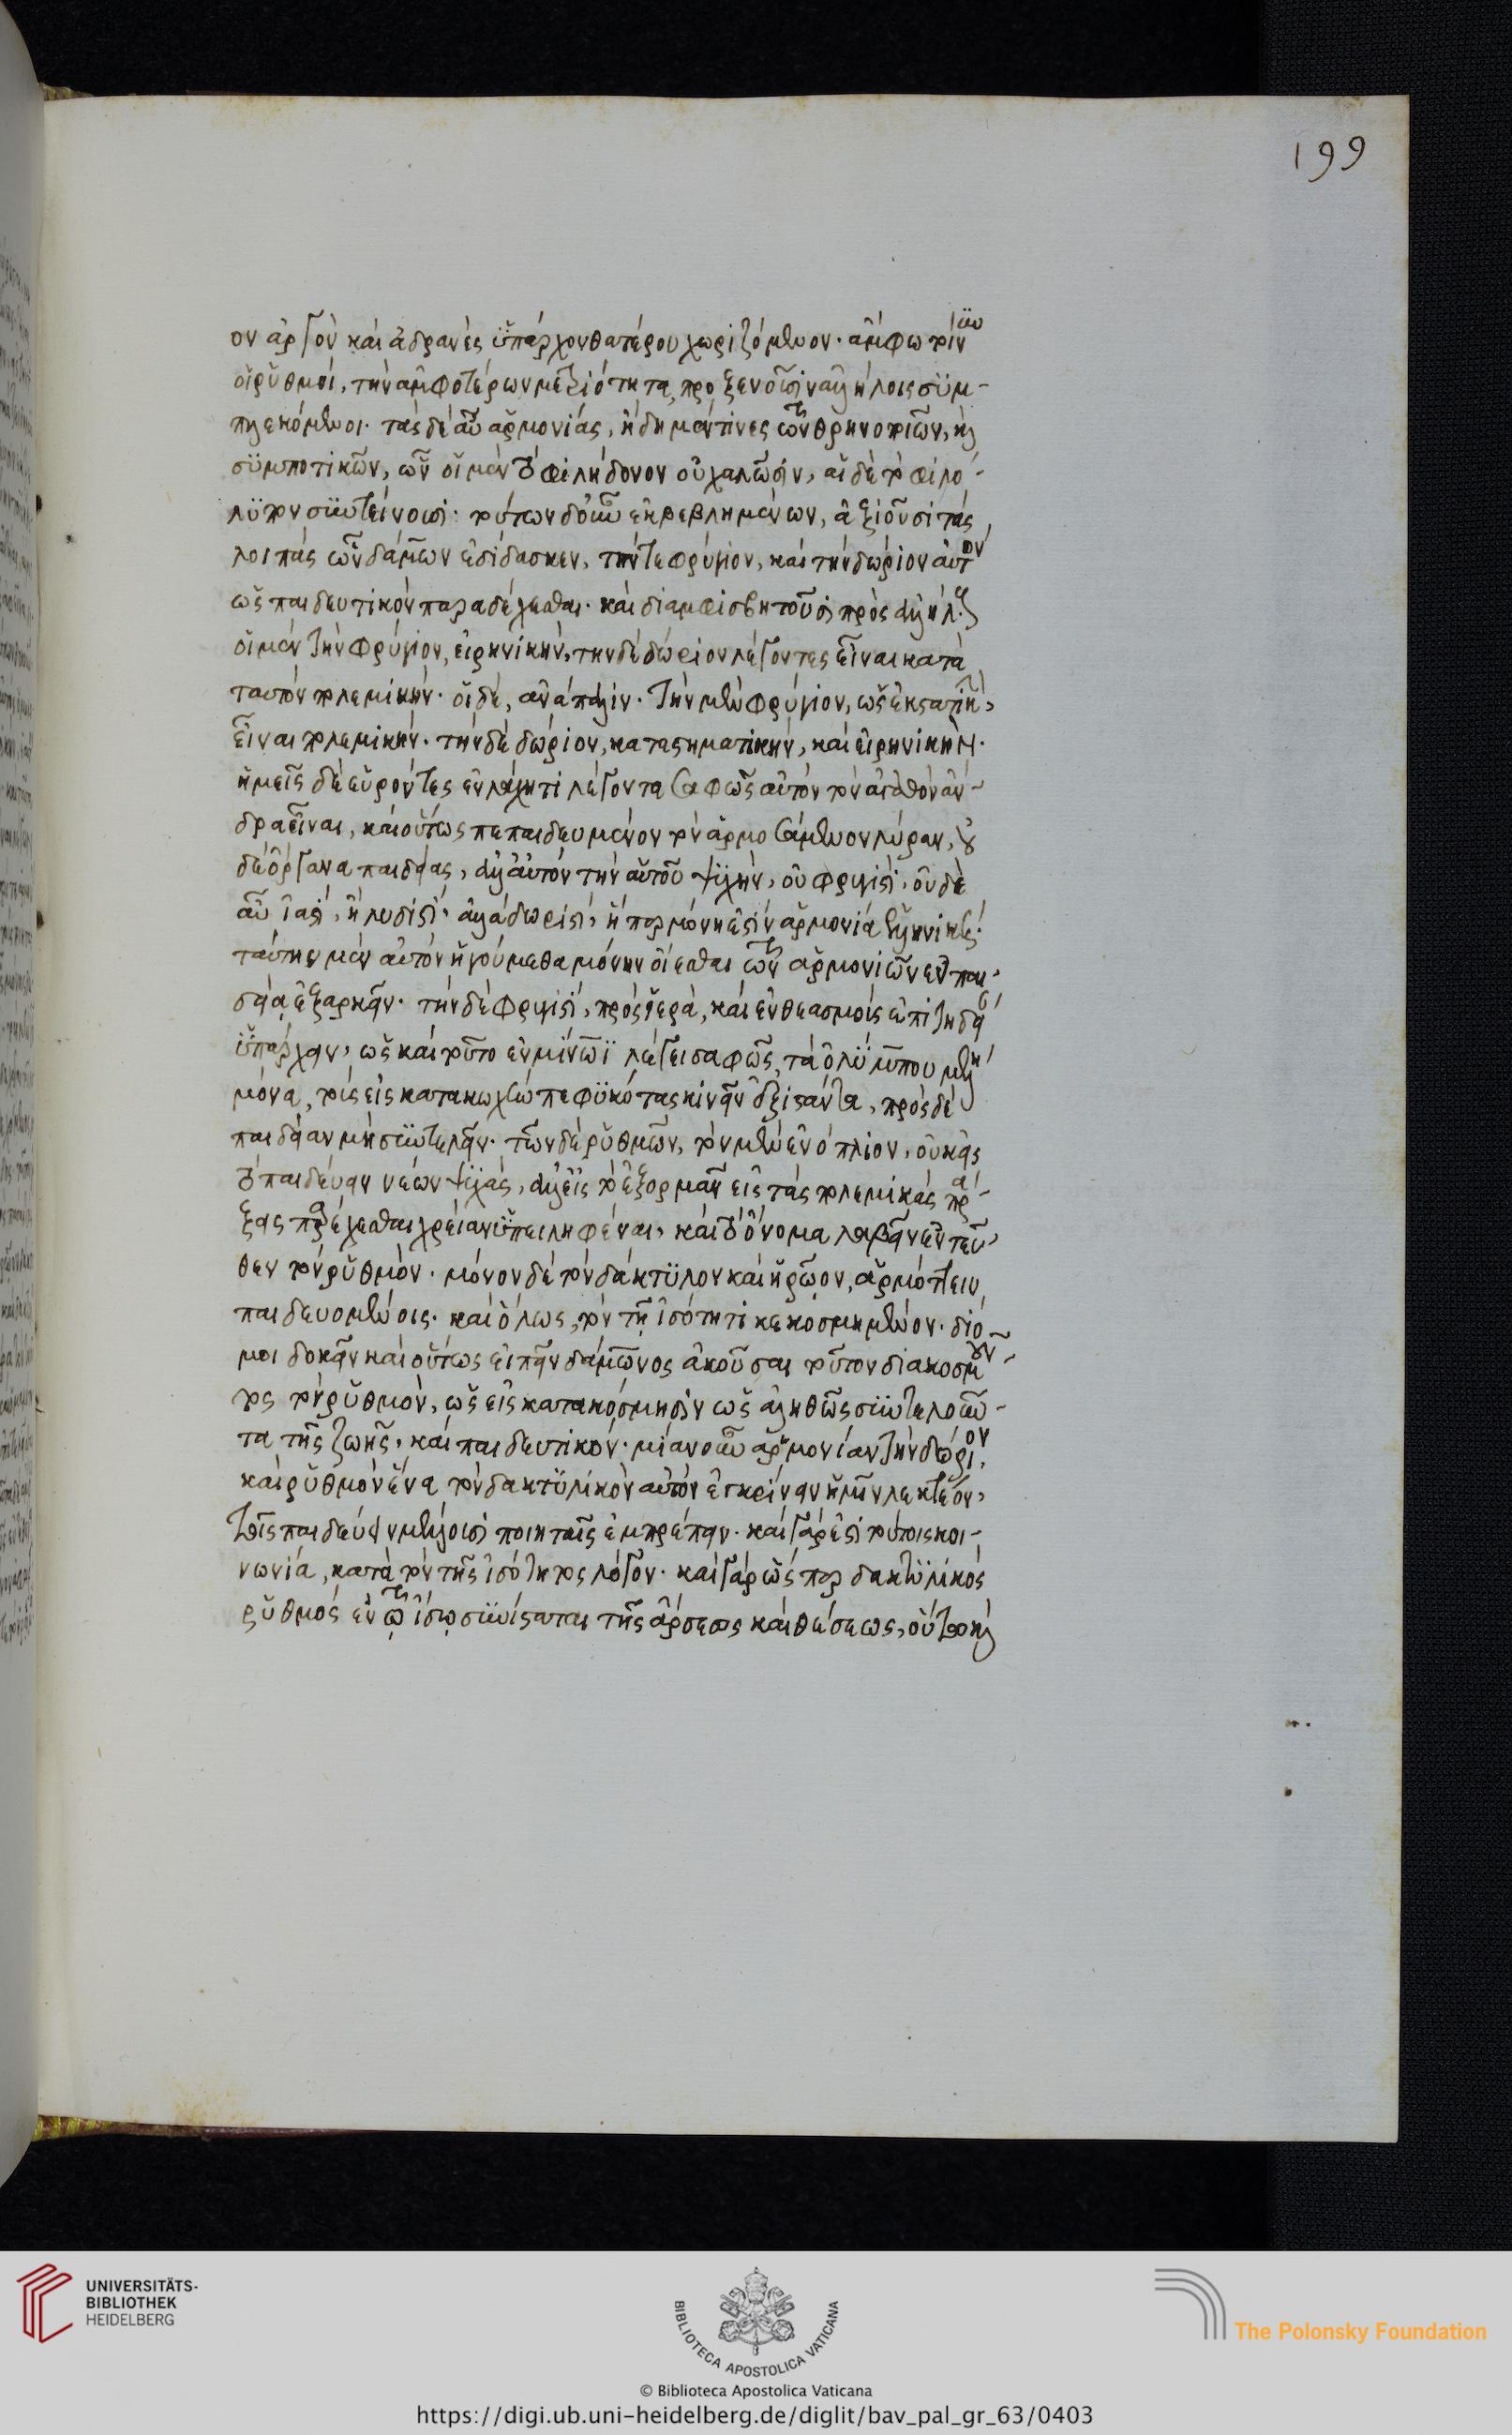 199
ον ἀργὸν καὶ ἀδρανὲς ὑπάρχον θατέρου χωριζόμενον· ἄμφω τοίνυν
οἱ ῥυθμοὶ, τὴν ἀμφοτέρων μετριότητα προξενοῦσιν ἀλλήλοις συμ-
πλεκόμενοι· τὰς δὲ αὖ ἁρμονίας, ἤδη μέν τινες τῶν θρηνοποιῶν, καὶ
συμποτικῶν, ὧν οἱ μὲν τὸ φιλήδονον οὐ χαλῶσιν, αἱ δὲ τὸ φιλό-
λυπον συντείνουσι· τούτων δ' οὖν ἐκβεβλημένων, ἀξιοῦσι τὰς
λοιπὰς ὧν δάμων ἐδίδασκεν, τήν τε φρύγιον, καὶ τὴν δώριον αὐτὸν
ὡς παιδευτικὸν παραδέχεσθαι· καὶ διαμφισβητοῦσι πρὸς ἀλλήλους
οἱ μὲν τὴν φρύγιον, εἰρηνικὴν, τὴν δὲ δώριον λέγοντες εἶναι κατὰ
ταυτὸν πολεμικήν· οἱ δὲ, ἀνάπαλιν· τὴν μὲν φρύγιον, ὡς ἐκστατικὴν,
εἶναι πολεμικήν· τὴν δὲ δώριον, καταστηματικὴν, καὶ εἰρηνικήν·
ἡμεῖς δὲ εὑρόντες ἐν λάχητι λέγοντα σαφῶς αὐτὸν τὸν ἀγαθὸν ἄν-
δρα εἶναι, καὶ οὕτως πεπαιδευμένον τὸν ἁρμοσάμενον λύραν, οὐ
δὲ ὄργανα παιδείας, ἀλλ' αὐτὸν τὴν αὑτοῦ ψυχὴν, οὐ φρυγιστὶ, οὐδὲ
αὖ ἰαστὶ, ἢ λυδιστὶ· ἀλλὰ δωριστὶ, ἥπερ μόνη ἐστὶν ἁρμονία ἑλληνική·
ταύτην μὲν αὐτὸν ἡγούμεθα μόνην οἴεσθαι τῶν ἁρμονιῶν ἐν παι-
δείᾳ ἐξαρκεῖν· τὴν δὲ φρυγιστὶ, πρὸς ἱερὰ, καὶ ἐνθεασμοὺς ἐπιτηδείαν
ὑπάρχειν, ὡς καὶ τοῦτο ἐν μίνωϊ λέγει σαφῶς, τὰ ὀλύμπου μέλη
μόνα, τοὺς εἰς κατακωχὴν πεφυκότας κινεῖν ἐξιστάντα, πρὸς δὲ
παιδείαν μὴ συντελεῖν· τῶν δὲ ῥυθμῶν, τὸν μὲν ἐνόπλιον, οὐκ εἰς
τὸ παιδεύειν νέων ψυχὰς, ἀλλ' εἰς τὸ ἐξορμᾶν εἰς τὰς πολεμικὰς πρά-
ξας παρέχεσθαι χρείαν ὑπειληφέναι, καὶ τὸ ὄνομα λαβεῖν ἐντεῦ-
θεν τὸν ῥυθμόν· μόνον δὲ τὸν δάκτυλον καὶ ἡρῷον, ἁρμόττειν
παιδευομένοις· καὶ ὅλως, τὸν τῇ ἰσότητι κεκοσμημένον· διό
μοι δοκεῖν καὶ οὕτως εἰπεῖν δάμωνος ἀκοῦσαι τοῦτον διακοσμοῦν-
τος τὸν ῥυθμὸν, ὡς εἰς κατακόσμησιν ὡς ἀληθῶς συντελοῦν-
τα τῆς ζωῆς, καὶ παιδευτικόν· μίαν οὖν ἁρμονίαν τὴν δώριον,
καὶ ῥυθμὸν ἕνα τὸν δακτυλικὸν αὐτὸν ἐγκρίνειν ἡμῖν λεκτέον,
τοῖς παιδεύειν μέλλουσι ποιηταῖς ἐμπρέπειν· καὶ γάρ ἐστι τούτοις κοι-
νωνία, κατὰ τὸν τῆς ἰσότητος λόγον· καὶ γὰρ ὥσπερ δακτυλικὸς
ῥυθμὸς ἐν τῷ ἴσῳ συνίσταται τῆς ἄρσεως καὶ θέσεως, οὕτω καὶ
UNIVERSITÄTS-
BIBLIOTHEK
HEIDELBERG
BIBLIOTECA APOSTOLICA VATICANA
The Polonsky Foundation
© Biblioteca Apostolica Vaticana
https://digi.ub.uni-heidelberg.de/diglit/bav_pal_gr_63/0403